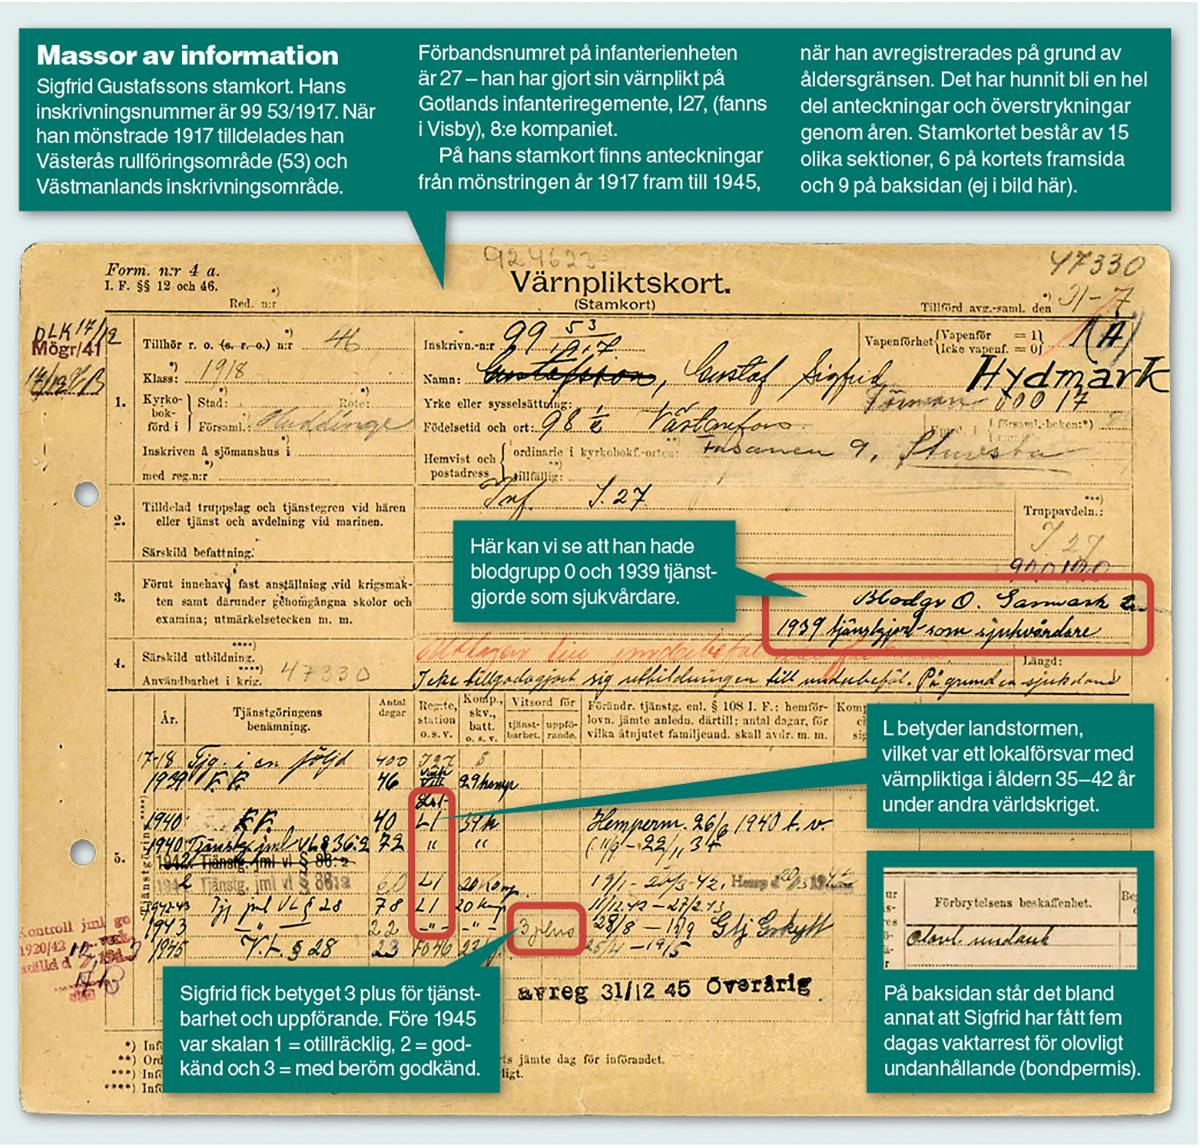 Massor av information
Sigfrid Gustafssons stamkort. Hans
inskrivningsnummer är 99 53/1917. När
han mönstrade 1917 tilldelades han
Västerås rullföringsområde (53) och
Västmanlands inskrivningsområde.
Förbandsnumret på infanterienheten
är 27 – han har gjort sin värnplikt på
Gotlands infanteriregemente, I27, (fanns
i Visby), 8:e kompaniet.
På hans stamkort finns anteckningar
från mönstringen år 1917 fram till 1945,
när han avregistrerades på grund av
åldersgränsen. Det har hunnit bli en hel
del anteckningar och överstrykningar
genom åren. Stamkortet består av 15
olika sektioner, 6 på kortets framsida
och 9 på baksidan (ej i bild här).
Form. n:r 4 a.
I. F. §§ 12 och 46.
Red. n:r
924623
Värnpliktskort.
(Stamkort)
47330
Tillförd avg.-saml. den 31-7
DLK 17/12
Mögr/41
Tillhör r. o. (s. r. o.) n:r 46
Inskrivn.-n:r 99 53/1917
Vapenförhet { Vapenför = 1
Icke vapenf. = 0 } 1 (A)
Klass: 1918
Namn: Gustafsson, Gustaf Sigfrid Hydmark
1.
Kyrko-
bok-
förd i
Stad: Rote:
Församl.: Huddinge
Yrke eller sysselsättning: Förman 00017
Födelsetid och ort: 98 Västanfors
församl.-boken:
Inskriven å sjömanshus i
med reg.n:r
Hemvist och
postadress
ordinarie i kyrkobokf.-orten: Fasanen 9, Stuvsta
tillfällig:
2.
Tilldelad truppslag och tjänstegren vid hären
eller tjänst och avdelning vid marinen.
Särskild befattning:
Inf I.27
Truppavdeln.:
I 27
Här kan vi se att han hade
blodgrupp 0 och 1939 tjänst-
gjorde som sjukvårdare.
3.
Förut innehavd fast anställning vid krigsmak-
ten samt därunder genomgångna skolor och
examina; utmärkelsetecken m. m.
Blodgr O.
1939 tjänstgjort som sjukvårdare
4.
Särskild utbildning.
Användbarhet i krig. 47330
Längd:
Icke tillgodogjort sig utbildningen till underbefäl. På grund av sjukdom
År.
Tjänstgöringens
benämning.
Antal
dagar
Reg:te,
station
o. s. v.
Komp.,
skv.,
batt.
o. s. v.
Vitsord för
tjänst-
barhet.
uppfö-
rande.
Förändr. tjänstg. enl. § 108 I. F.: hemför-
lovn. jämte anledn. därtill; antal dagar, för
vilka åtnjutet familjeund. skall avdr. m. m.
5.
Tjänstgöring
17-18 Tjg. i en följd 400 I27 8
1939 F.F. 46 29 komp
1940 F.F. 40 L1 34 k Hemperm. 26/6 1940 t. v.
1940 Tjänstg jml VL § 36:2 72 " "
1942 Tjänstg. jml vl § 36:2
1942 Tjänstg. jml vl § 36:2 60 L1 20 Komp.
1942-43 Tjg jml VL § 28 78 L1 20 Komp
1943 22 -"- -"- 3 plus 28/8 –
1945 V.L. § 28 23 Fo 46 – 19/5
avreg 31/12 45 Överårig
L betyder landstormen,
vilket var ett lokalförsvar med
värnpliktiga i åldern 35–42 år
under andra världskriget.
Kontroll jml go
1920/42
Sigfrid fick betyget 3 plus för tjänst-
barhet och uppförande. Före 1945
var skalan 1 = otillräcklig, 2 = god-
känd och 3 = med beröm godkänd.
*) Inf
**) Ord
***) Inf
****) Inf
jämte dag för införandet.
Förbrytelsens beskaffenhet.
olovl. undanh
På baksidan står det bland
annat att Sigfrid har fått fem
dagas vaktarrest för olovligt
undanhållande (bondpermis).